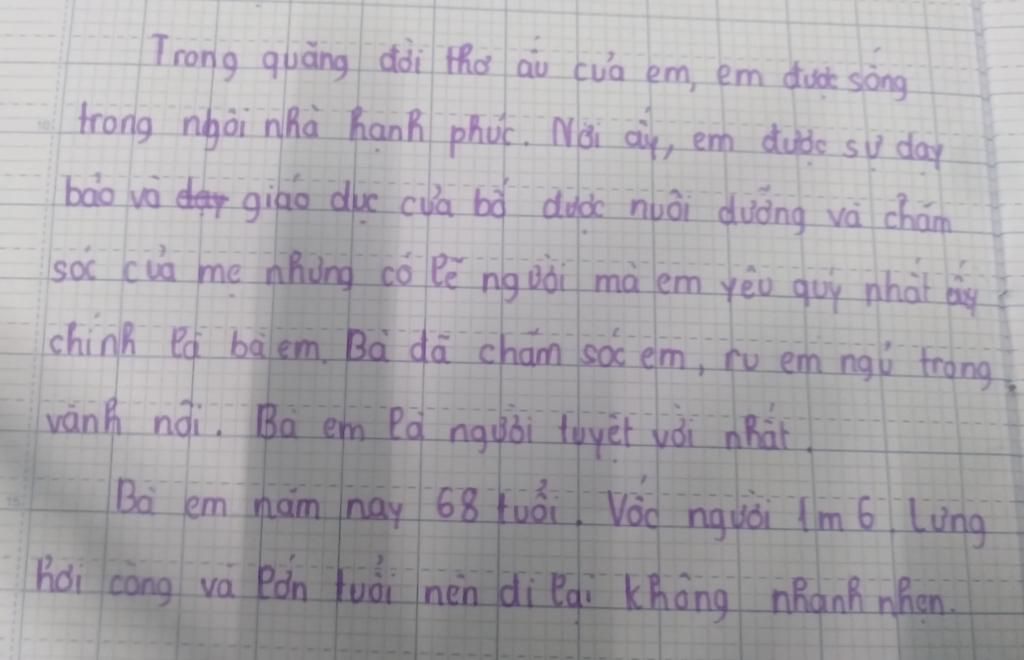 Trong quãng đời thơ ấu của em, em được sống
trong ngôi nhà hạnh phúc. Nơi ấy, em được sự dạy
bảo và dạy giáo dục của bố được nuôi dưỡng và chăm
sóc của mẹ nhưng có lẽ người mà em yêu quý nhất ấy
chính là bà em. Bà đã chăm sóc em, ru em ngủ trong
vành nôi. Bà em là người tuyệt vời nhất.
Bà em năm nay 68 tuổi. Vóc người 1m6. Lưng
hơi còng và lớn tuổi nên đi lại không nhanh nhẹn.